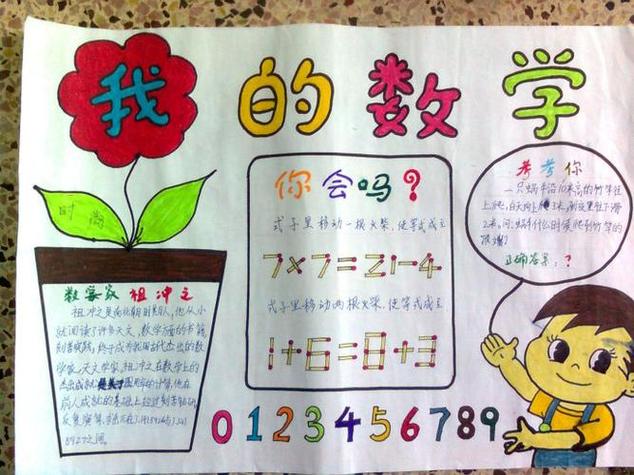 我的数学
时 尚
数学家 祖冲之
祖冲之是南北朝时期人，他从小
就阅读了许多天文、数学方面的书籍，
刻苦
终于成为我国古代杰出的数
学家、天文学家，祖冲之在数学上的
杰出成就
的计算，他在
前人成就的基础上经过刻苦
反复演算
之间。
你会吗？
式子里移动一根火柴，使等式成立
7×7=21-4
式子里移动两根火柴，使等式成立
1+6=8+3
考考你
一只蜗牛沿10米高的竹竿往
上爬，白天向上爬3米，到夜里往下滑
2米。问：蜗牛什么时候爬到竹竿的
顶端？
正确答案：？
0123456789